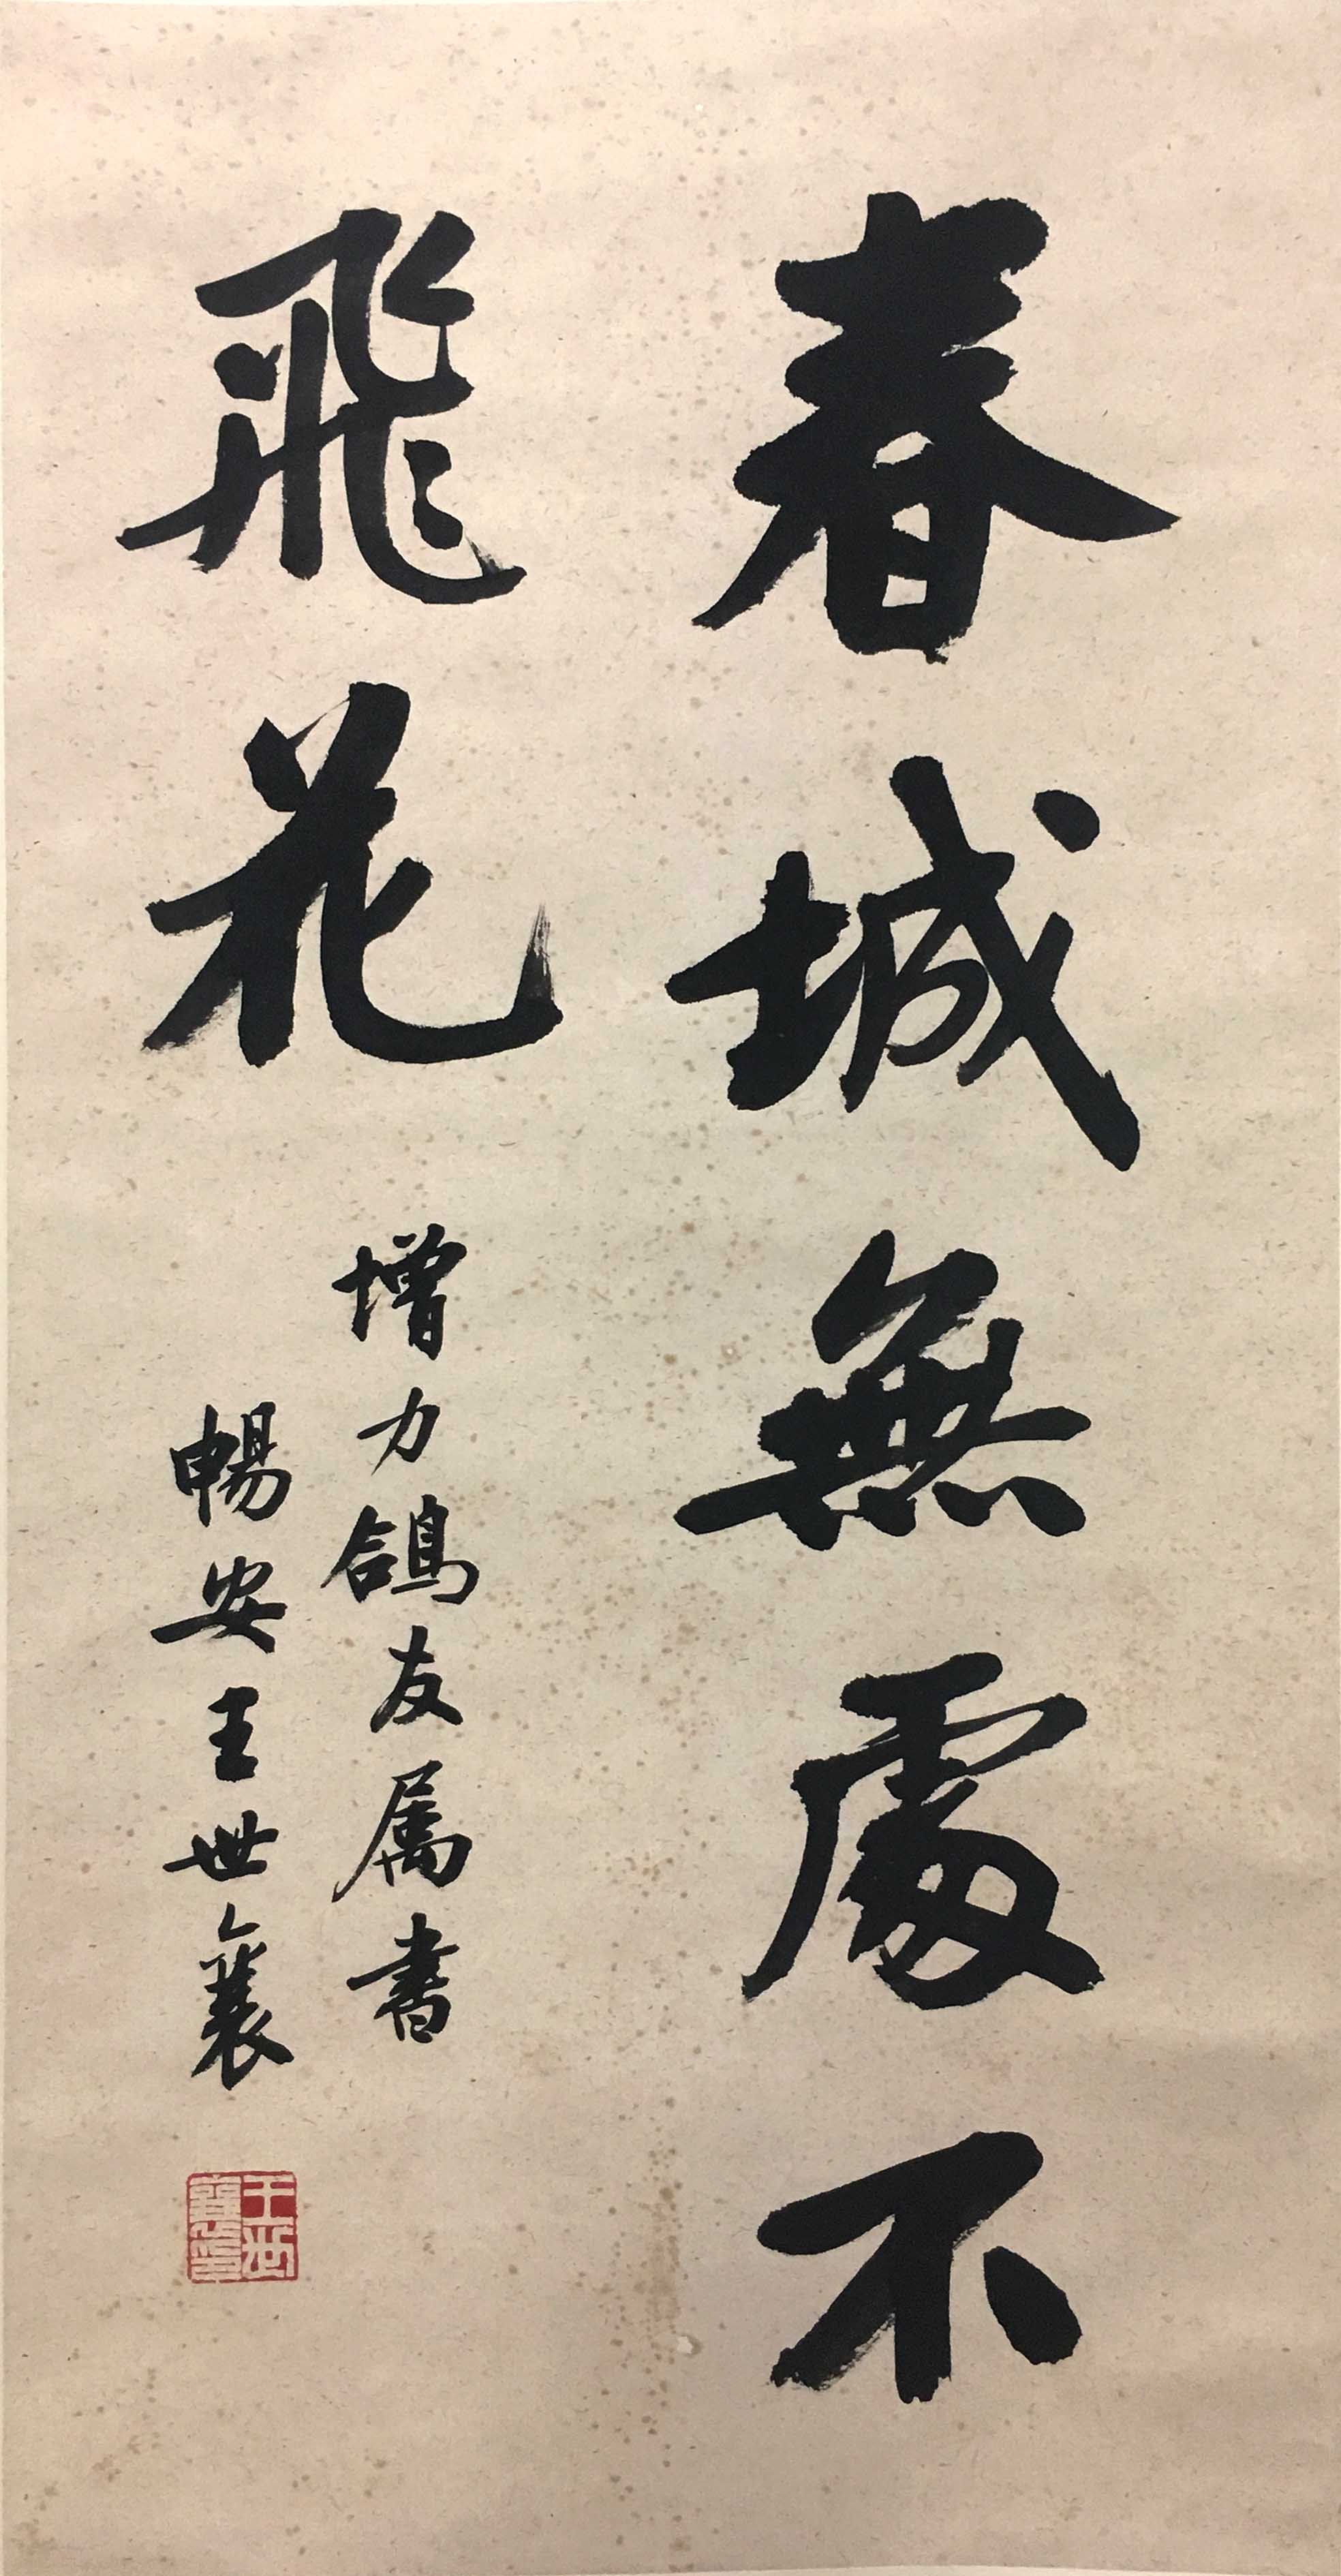 春城無處不
飛花
增力鴿友属書
暢安王世襄
王世襄